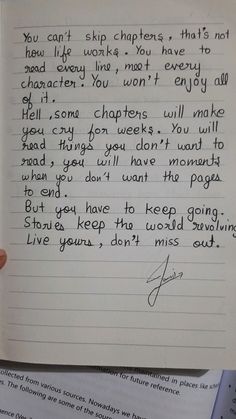 You can't skip chapters, that's not
how life works. You have to
read every line, meet every
character. You won't enjoy all
of it.
Hell, some chapters will make
you cry for weeks. You will
read things you don't want to
read, you will have moments
when you don't want the pages
to end.
But you have to keep going.
Stories keep the world revolving
Live yours, don't miss out.
maintained in places like
mation for future reference.
ollected from various sources. Nowadays we ha
s. The following are some of the sour